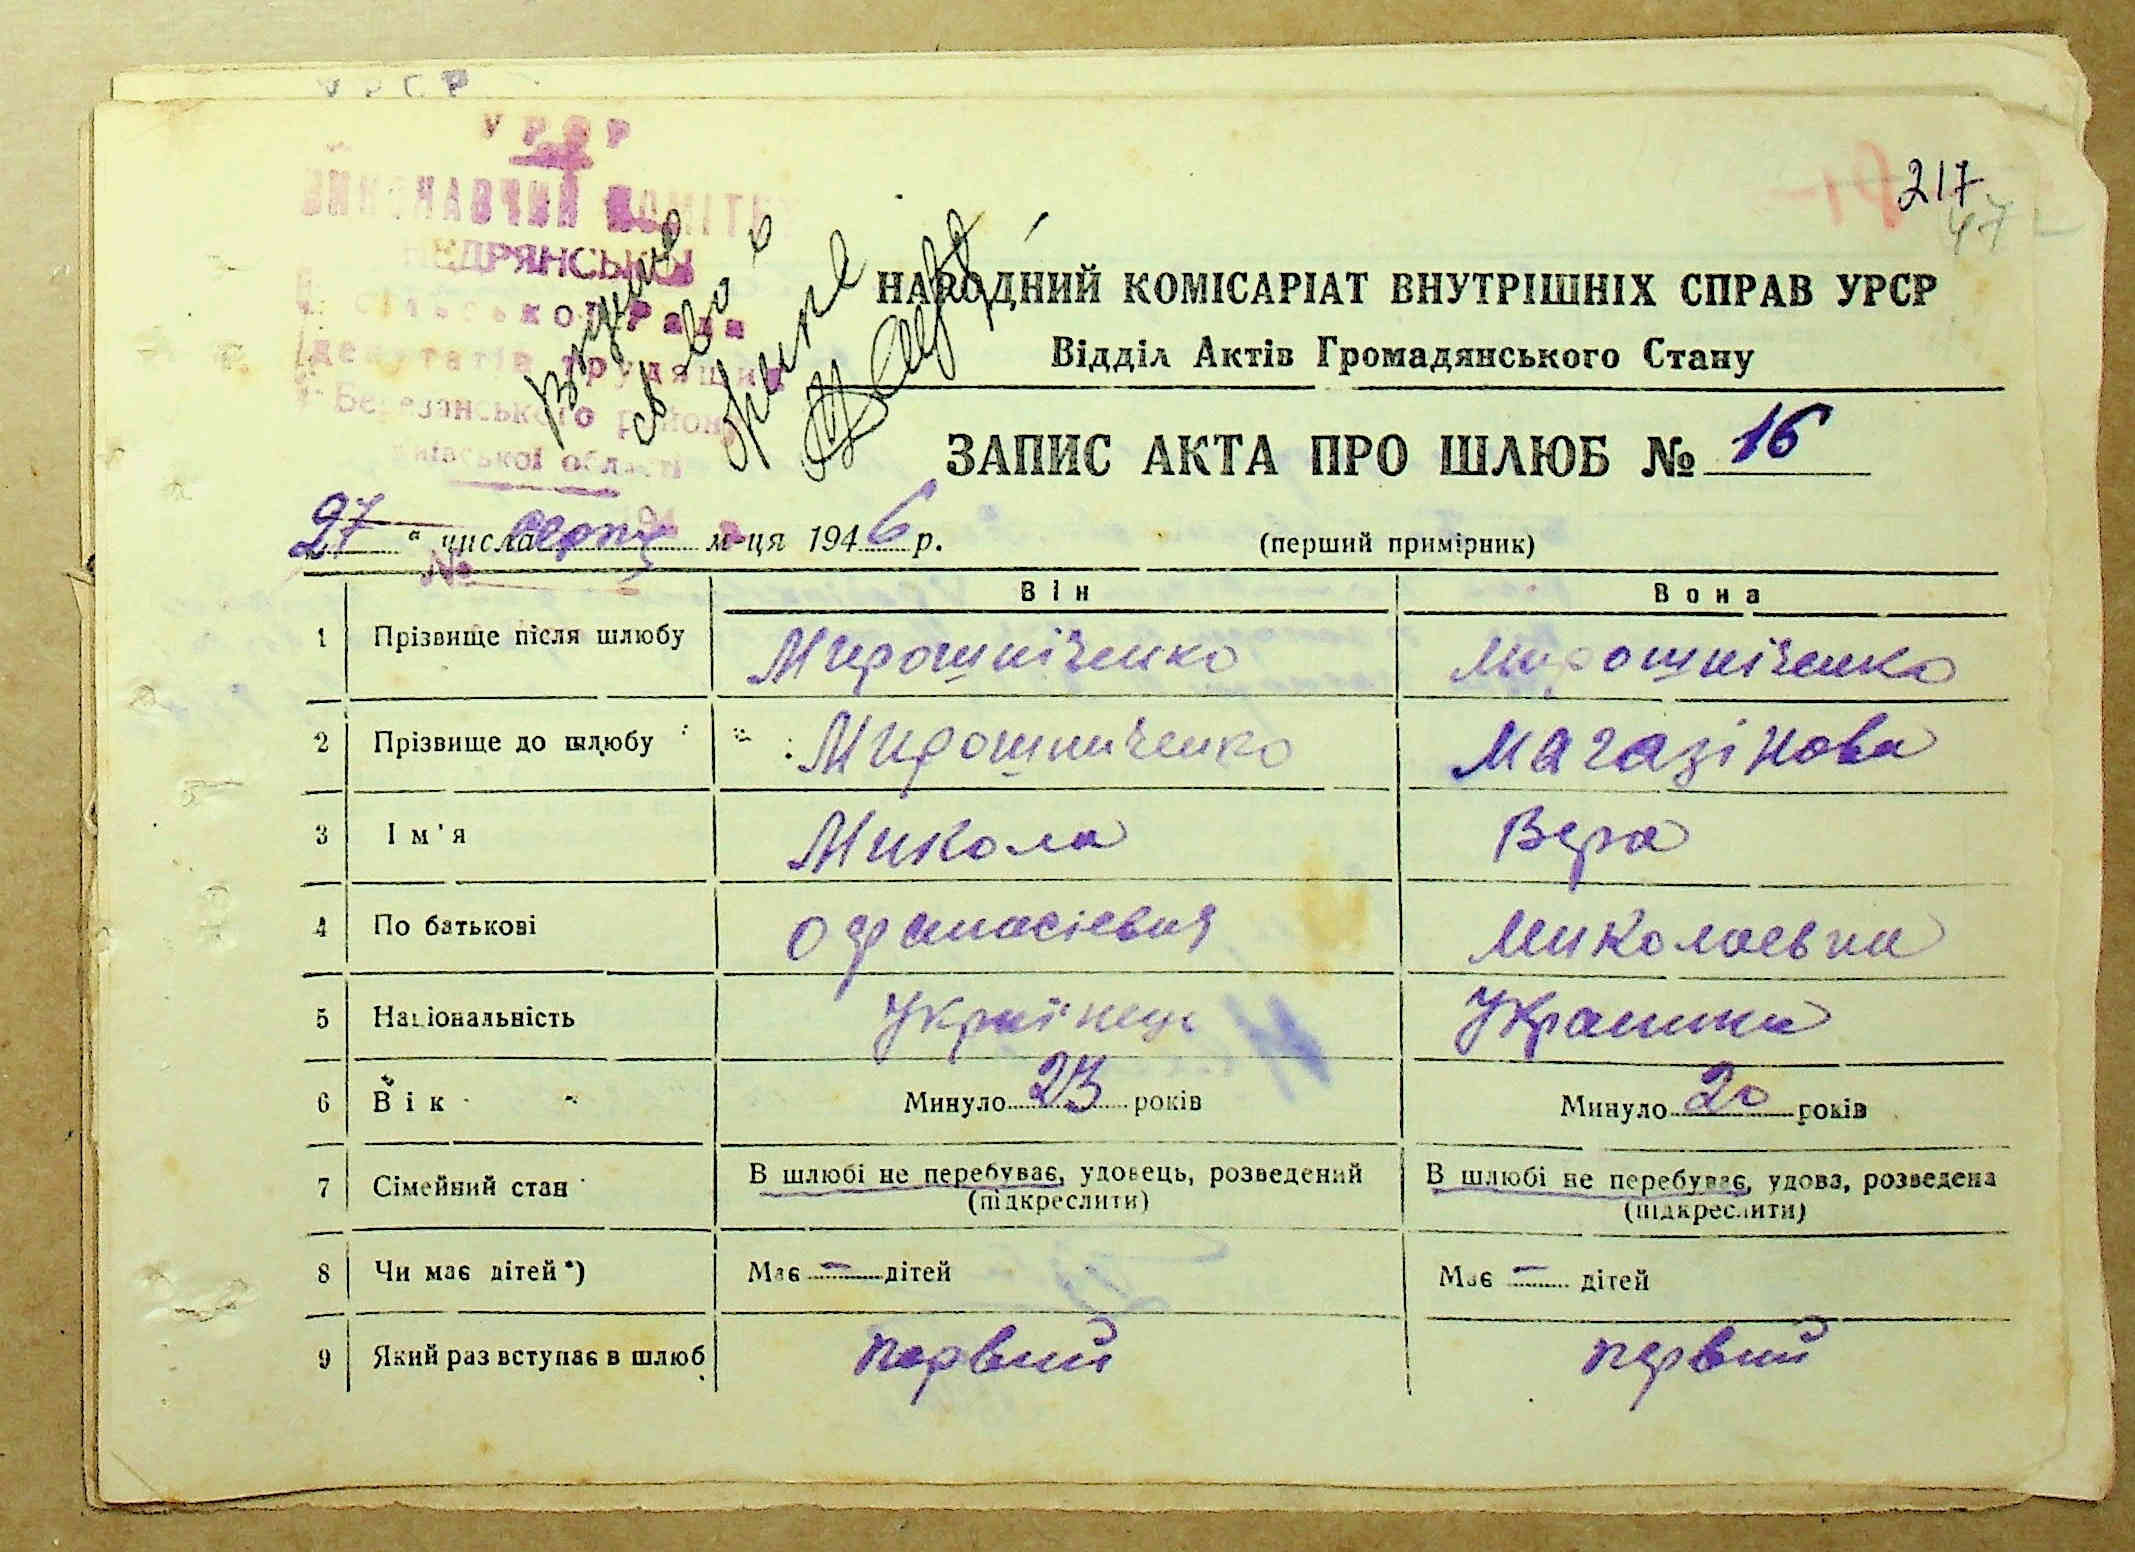 УРСР
ВИКОНАВЧИЙ КОМІТЕТ
НЕДРЯНСЬКОЇ
сільської Ради
депутатів трудящих
Березанського району
Київської області
217
47
НАРОДНИЙ КОМІСАРІАТ ВНУТРІШНІХ СПРАВ УРСР
Відділ Актів Громадянського Стану
ЗАПИС АКТА ПРО ШЛЮБ № 16
27 " числа серпн м-ця 1946 р.
(перший примірник)
№
Він Вона
1 Прізвище після шлюбу Мирошніченко Мирошніченко
2 Прізвище до шлюбу Мирошниченко Магазінова
3 Ім'я Микола Вера
4 По батькові Офанасієвич Миколаєвна
5 Національність Українець Українка
6 Вік Минуло 23 років Минуло 20 років
7 Сімейний стан В шлюбі не перебуває, удовець, розведений (підкреслити) В шлюбі не перебуває, удова, розведена (підкреслити)
8 Чи має дітей*) Має – дітей Має – дітей
9 Який раз вступає в шлюб первий первий